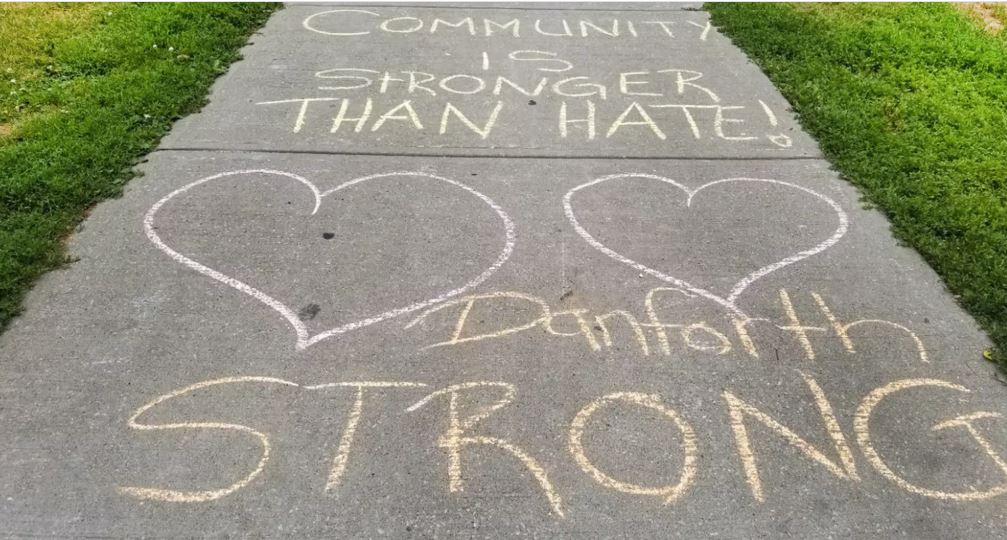 COMMUNITY
IS
STRONGER
THAN HATE!
Danforth
STRONG